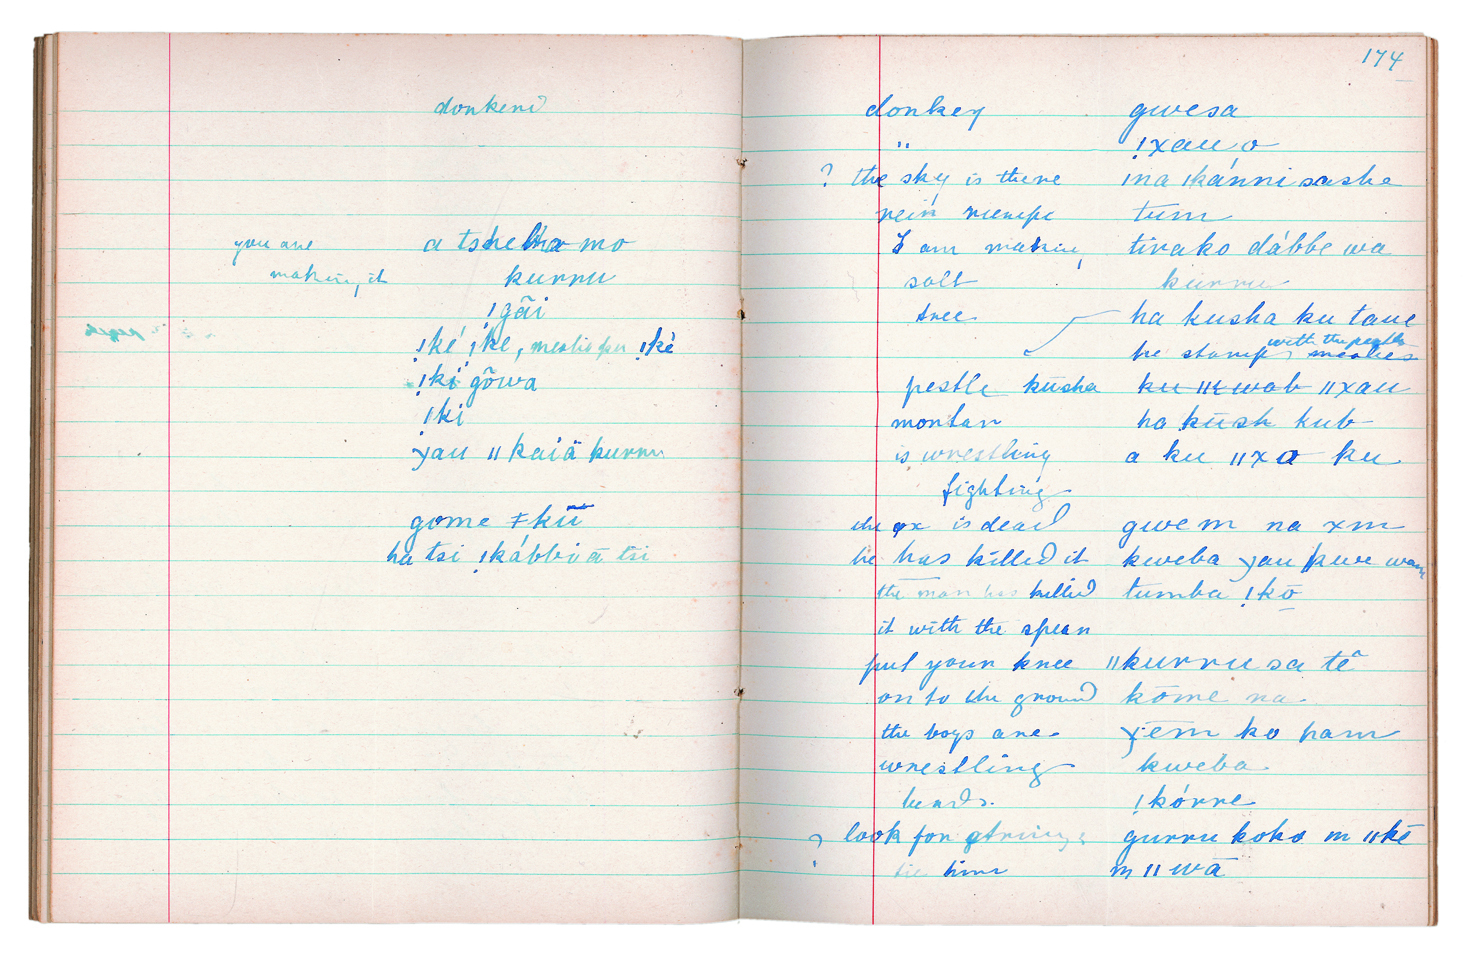 donkeni
you are a tshe kha mo
making it kurru
ǃgãi
ǃké ǃke, mealie ǃké
ǃkí gõwa
ǃki
yau ǁ kaiä kurru
gome ǂkũ
ha tsi ǃkábbi ā tsi
174
donkey gwesa
" ǃxau o
? the sky is there ina ǀkánni sashe
tum
I am making tirako dábbe wa
salt kurru
tree ha kusha ku taue
with the pestle
he stamps mealies
pestle kūsha ku ǁxau
mortar ha kūsh kub
is wrestling a ku ǁxa ku
fighting
the ox is dead gwe m na xm
he has killed it kweba yau kwe
the man has killed tumba ǃkō
it with the spear
put your knee ǁkurru sa tē
on to the ground kōme na
the boys are xēm ko ham
wrestling kweba
beads. ǃkórre
? look for strings gurru koko m ǁkē
m ǁwā